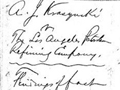 A. J. Kraszynski
vs
The Los Angeles
Refining Company.
Findings of fact